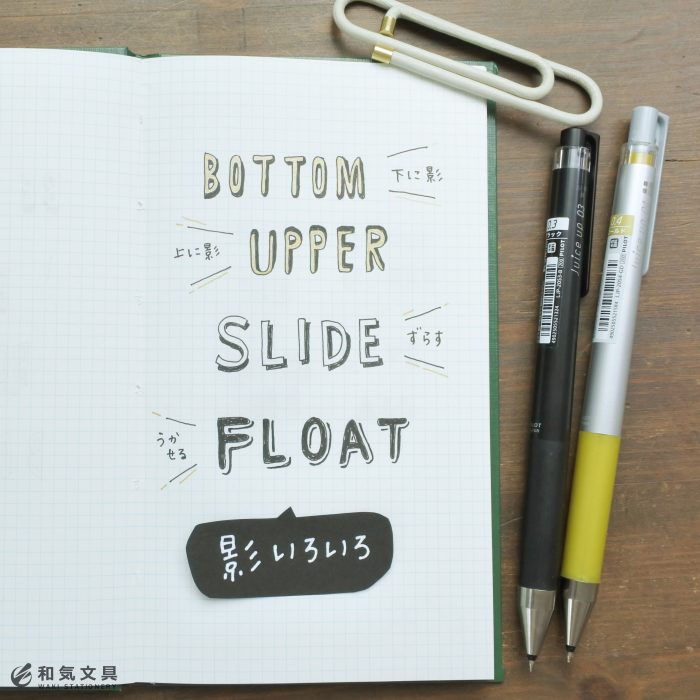 BOTTOM
下に影
上に影
UPPER
SLIDE
ずらす
うか
せる
FLOAT
影いろいろ
0.3
Juice up 03
PILOT
0.4
PILOT
和気文具
WAKI STATIONERY